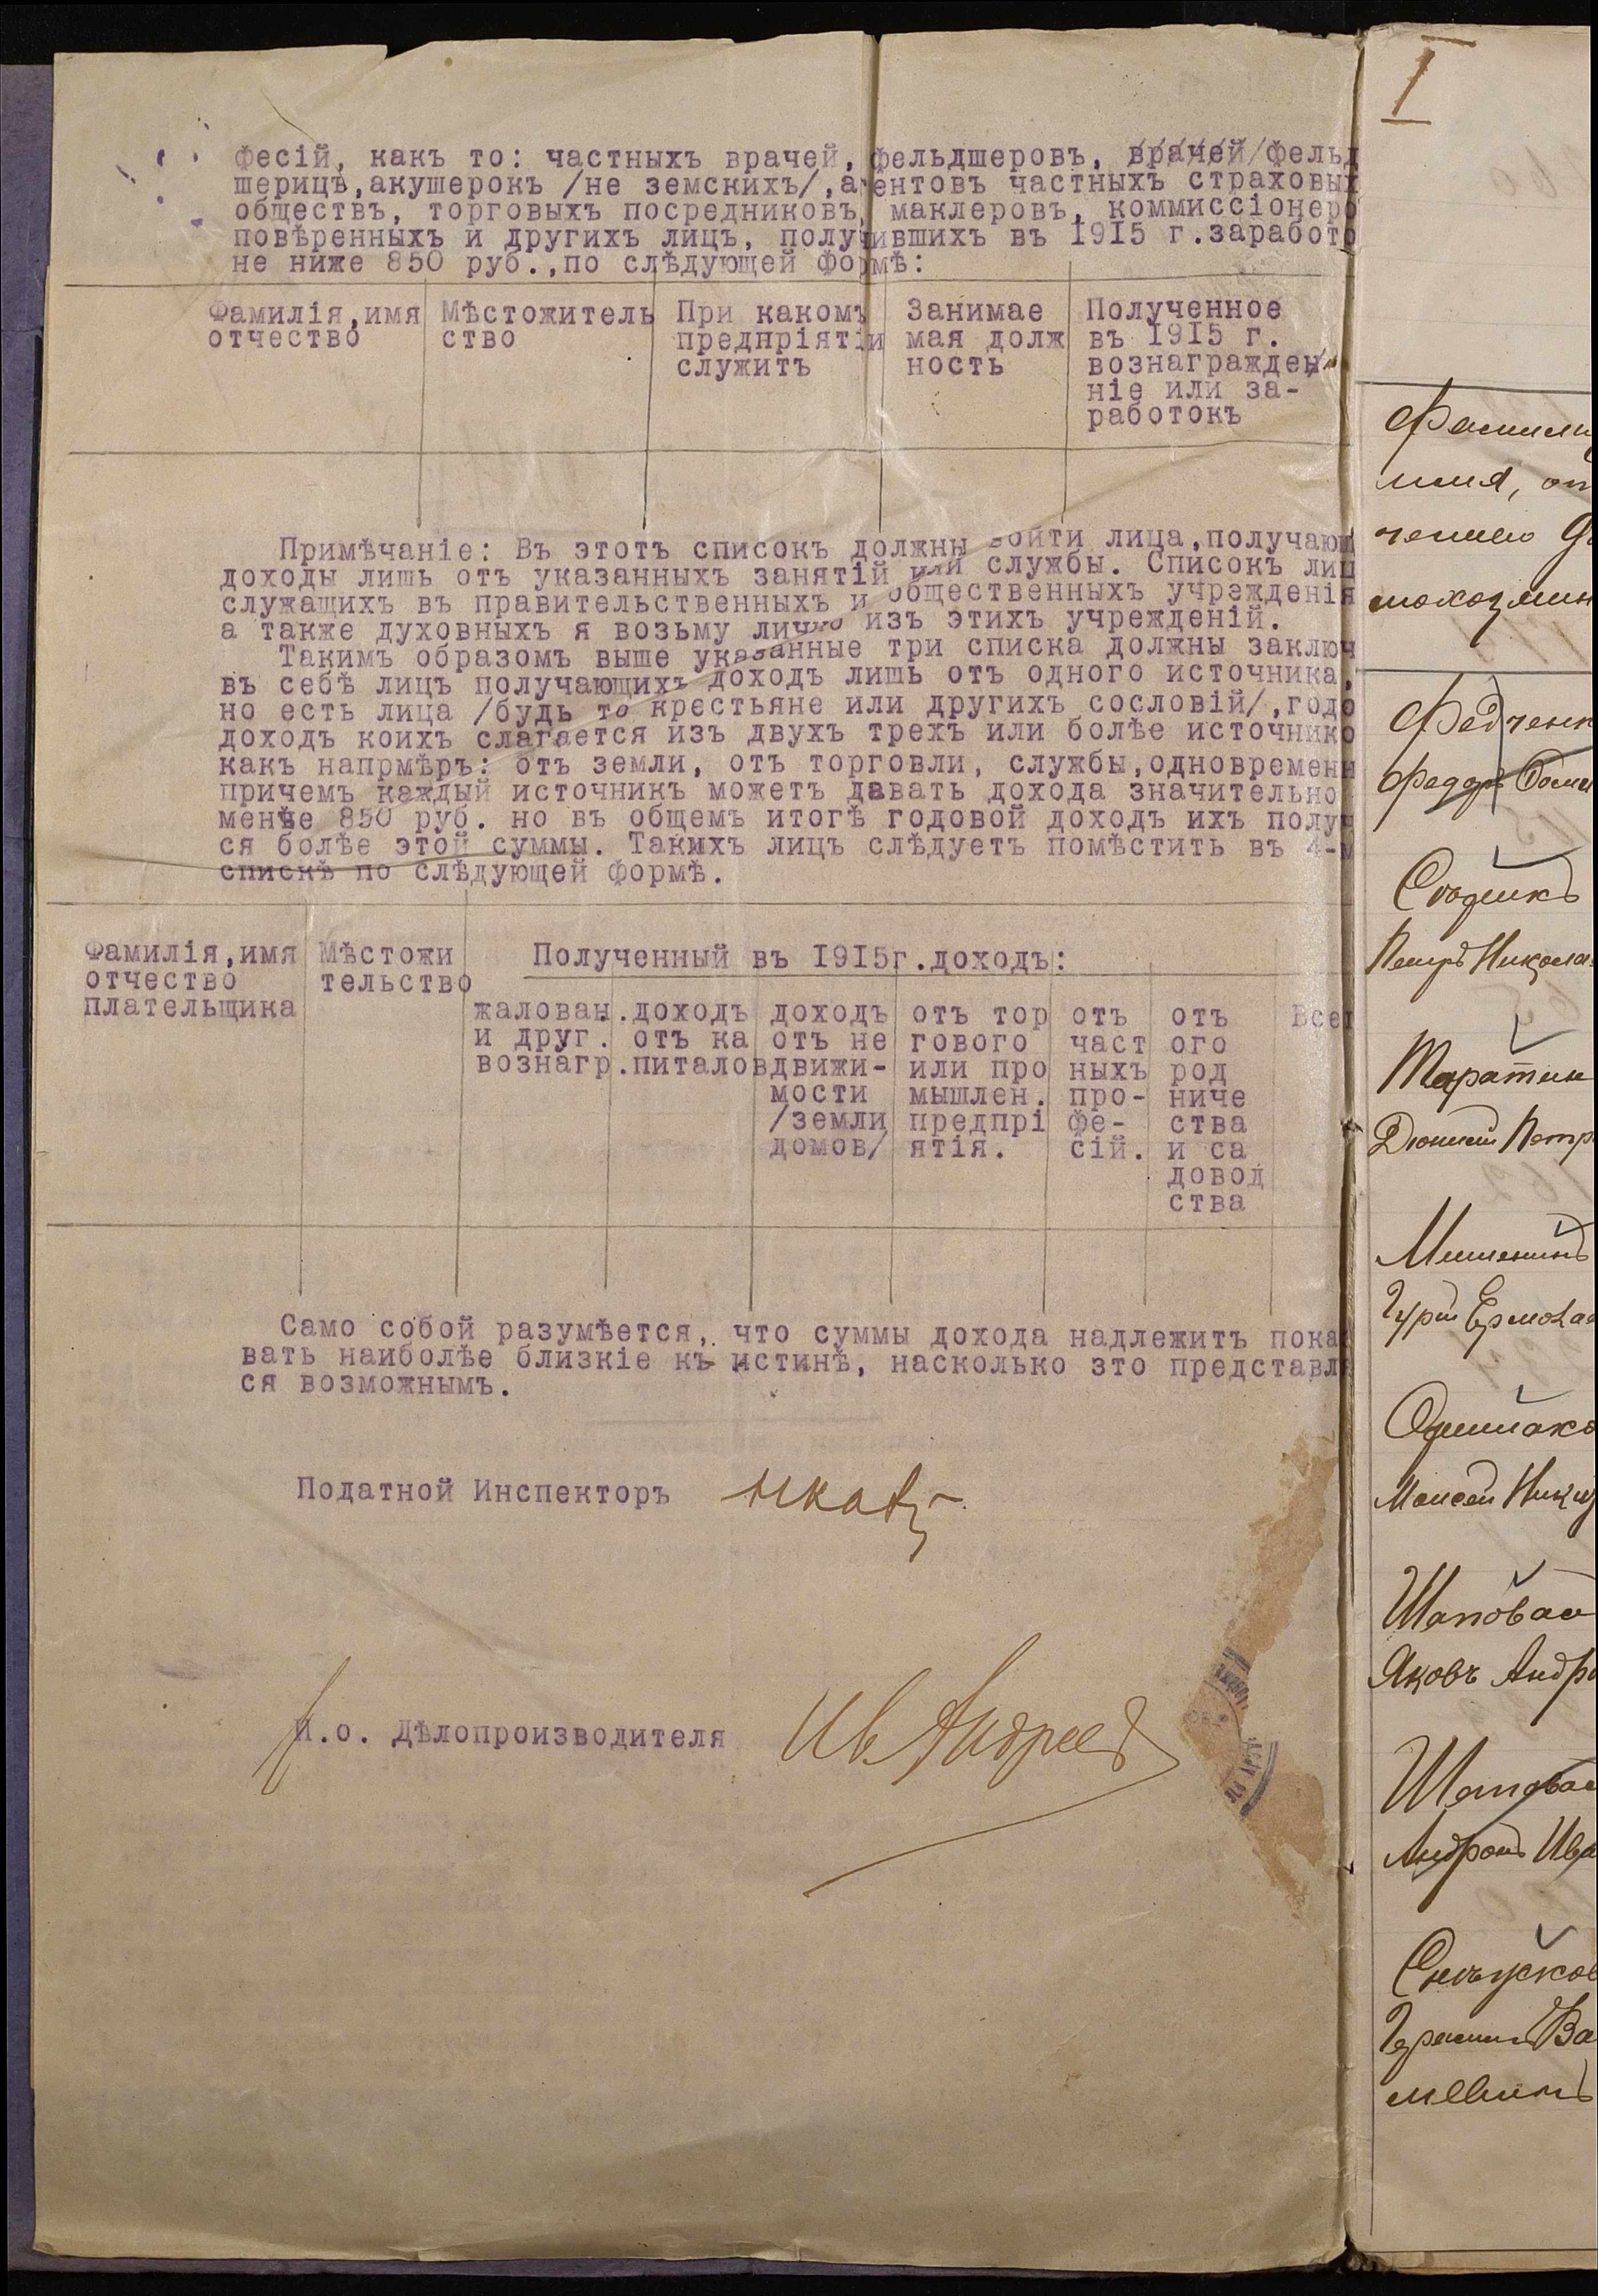 фесій, какъ то: частныхъ врачей, фельдшеровъ, врачей/фельд
шерицъ,акушерокъ /не земскихъ/,агентовъ частныхъ страховых
обществъ, торговыхъ посредниковъ, маклеровъ, коммиссіонеро
повѣренныхъ и другихъ лицъ, получившихъ въ 1915 г.заработо
не ниже 850 руб.,по слѣдующей формѣ:
Фамилія,имя отчество
Мѣстожитель ство
При какомъ предпріятіи служитъ
Занимае мая долж ность
Полученное въ 1915 г. вознагражден ніе или за- работокъ
Примѣчаніе: Въ этотъ списокъ должны войти лица,получающ
доходы лишь отъ указанныхъ занятій или службы. Списокъ лиц
служащихъ въ правительственныхъ и общественныхъ учрежденія
а также духовныхъ я возьму лично изъ этихъ учрежденій.
Такимъ образомъ выше указанные три списка должны заключ
въ себѣ лицъ получающихъ доходъ лишь отъ одного источника,
но есть лица /будь то крестьяне или другихъ сословій/,годо
доходъ коихъ слагается изъ двухъ трехъ или болѣе источнико
какъ напрмѣръ: отъ земли, отъ торговли, службы,одновременн
причемъ каждый источникъ можетъ давать дохода значительно
менѣе 850 руб. но въ общемъ итогѣ годовой доходъ ихъ получ
ся болѣе этой суммы. Такихъ лицъ слѣдуетъ помѣстить въ 4-м
спискѣ по слѣдующей формѣ.
Фамилія,имя отчество плательщика
Мѣстожи тельство
Полученный въ 1915г.доходъ:
жалован. и друг. вознагр.
доходъ отъ ка питалов
доходъ отъ не движи- мости /земли домов/
отъ тор гового или про мышлен. предпрі ятія.
отъ част ныхъ про- фе- сій.
отъ ого род ниче ства и са довод ства
Всег
Само собой разумѣется, что суммы дохода надлежитъ пока
вать наиболѣе близкіе къ истинѣ, насколько это представля
ся возможнымъ.
Податной Инспекторъ
И.о. Дѣлопроизводителя Ив Андреев
I
Фамили
имя, от
Федченк
Федоръ
Петръ Никола
Таратин
Мишенинъ
Гурій Ермола
Моисей
Шаповал
Яковъ Андр
Шаповал
Ива